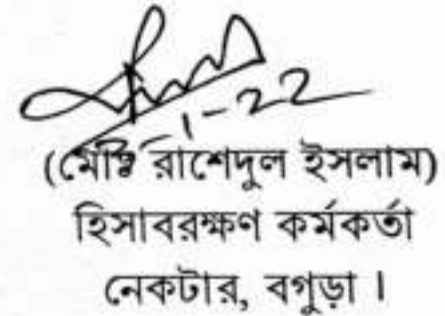 -1-22
(মোঃ রাশেদুল ইসলাম)
হিসাবরক্ষণ কর্মকর্তা
নেকটার, বগুড়া ।